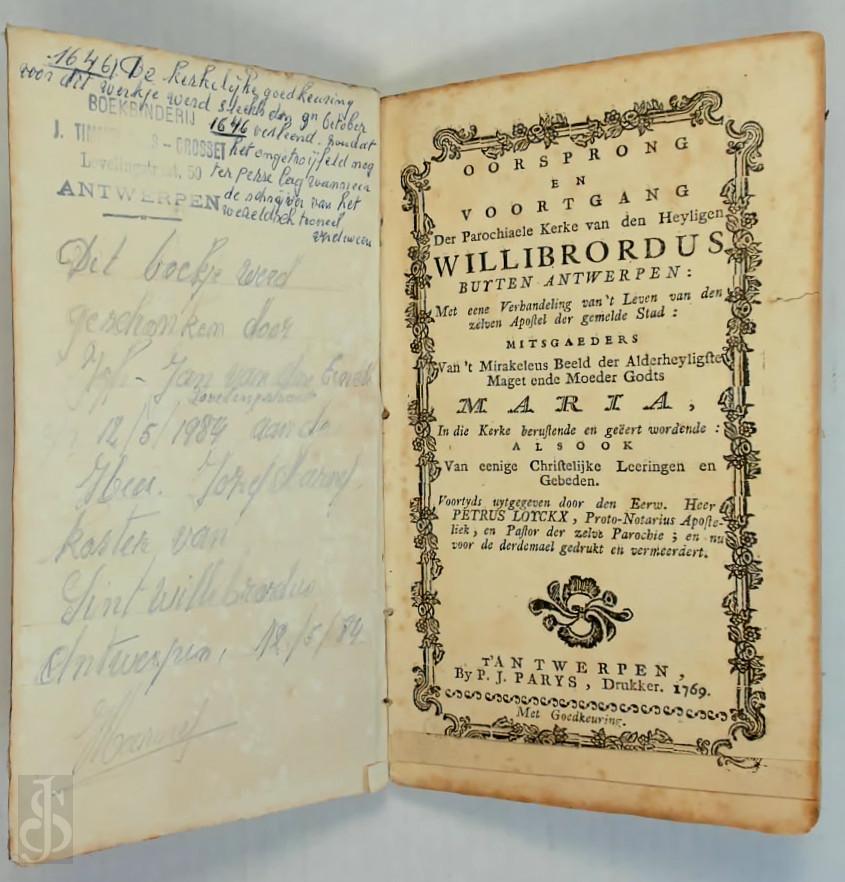 1646! De kerkelijke goedkeuring
voor dit werkje werd slechts den 9n October
1646 verleend. zoodat
het ongetwijfeld nog
ter perse lag wanneer
de schrijver van het
wereldsch tooneel
verdween
BOEKBINDERIJ
J. - GROSSET
Lovelingstraat, 50
ANTWERPEN
Dit boekje werd
geschonken door
Jan van den
Lovelingstraat
12/5/1984 aan de
Heer. Jozef
koster van
Sint Willibrordus
Antwerpen, 12/5/84
OORSPRONG
EN
VOORTGANG
Der Parochiaele Kerke van den Heyligen
WILLIBRORDUS
BUYTEN ANTWERPEN:
Met eene Verhandeling van't Leven van den
zelven Apoſtel der gemelde Stad:
MITSGAEDERS
Van 't Mirakeleus Beeld der Alderheyligſte
Maget ende Moeder Godts
MARIA,
In die Kerke beruſtende en geëert wordende:
ALSOOK
Van eenige Chriſtelijke Leeringen en
Gebeden.
Voortyds uytgegeven door den Eerw. Heer
PETRUS LOYCKX, Proto-Notarius Apoſte-
liek, en Paſtor der zelve Parochie; en nu
voor de derdemael gedrukt en vermeerdert.
T'ANTWERPEN,
By P. J. PARYS, Drukker. 1769.
Met Goedkeuring.